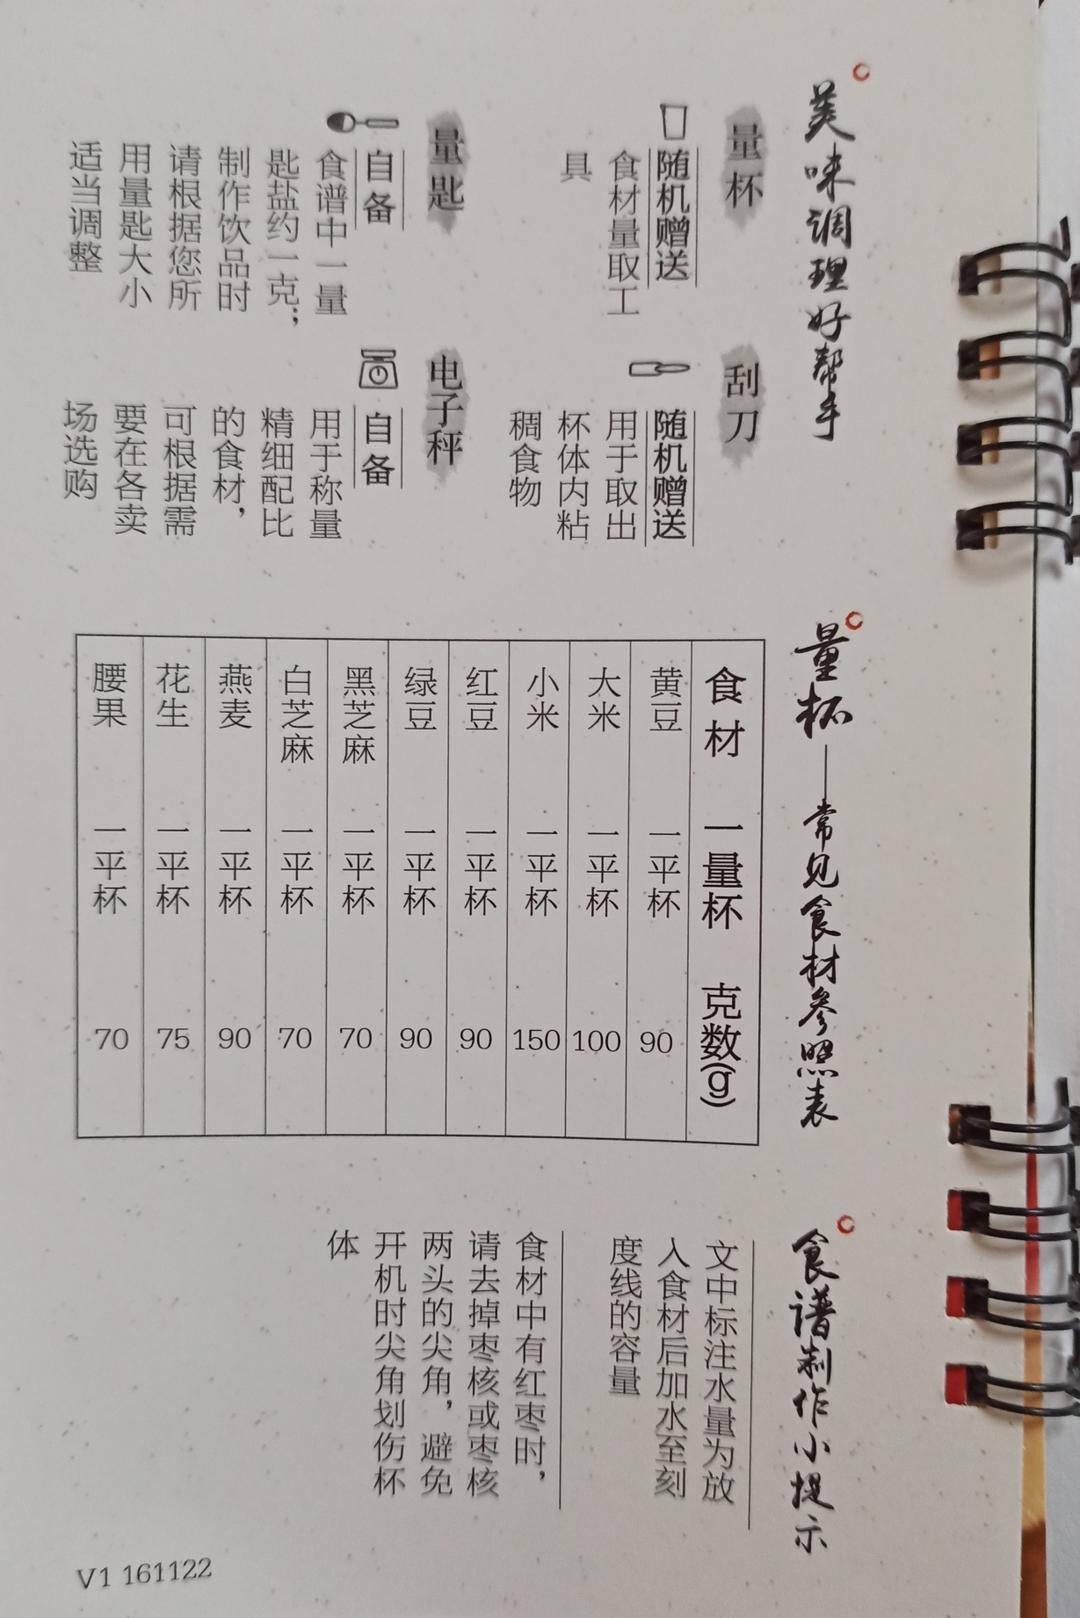 美味调理好帮手
量杯
随机赠送
食材量取工
具
刮刀
随机赠送
用于取出
杯体内粘
稠食物
量匙
自备
食谱中一量
匙盐约一克；
制作饮品时
请根据您所
用量匙大小
适当调整
电子秤
自备
用于称量
精细配比
的食材，
可根据需
要在各卖
场选购
量杯——常见食材参照表
食材 一量杯 克数(g)
黄豆 一平杯 90
大米 一平杯 100
小米 一平杯 150
红豆 一平杯 90
绿豆 一平杯 90
黑芝麻 一平杯 70
白芝麻 一平杯 70
燕麦 一平杯 90
花生 一平杯 75
腰果 一平杯 70
食谱制作小提示
文中标注水量为放
入食材后加水至刻
度线的容量
食材中有红枣时，
请去掉枣核或枣核
两头的尖角，避免
开机时尖角划伤杯
体
V1 161122